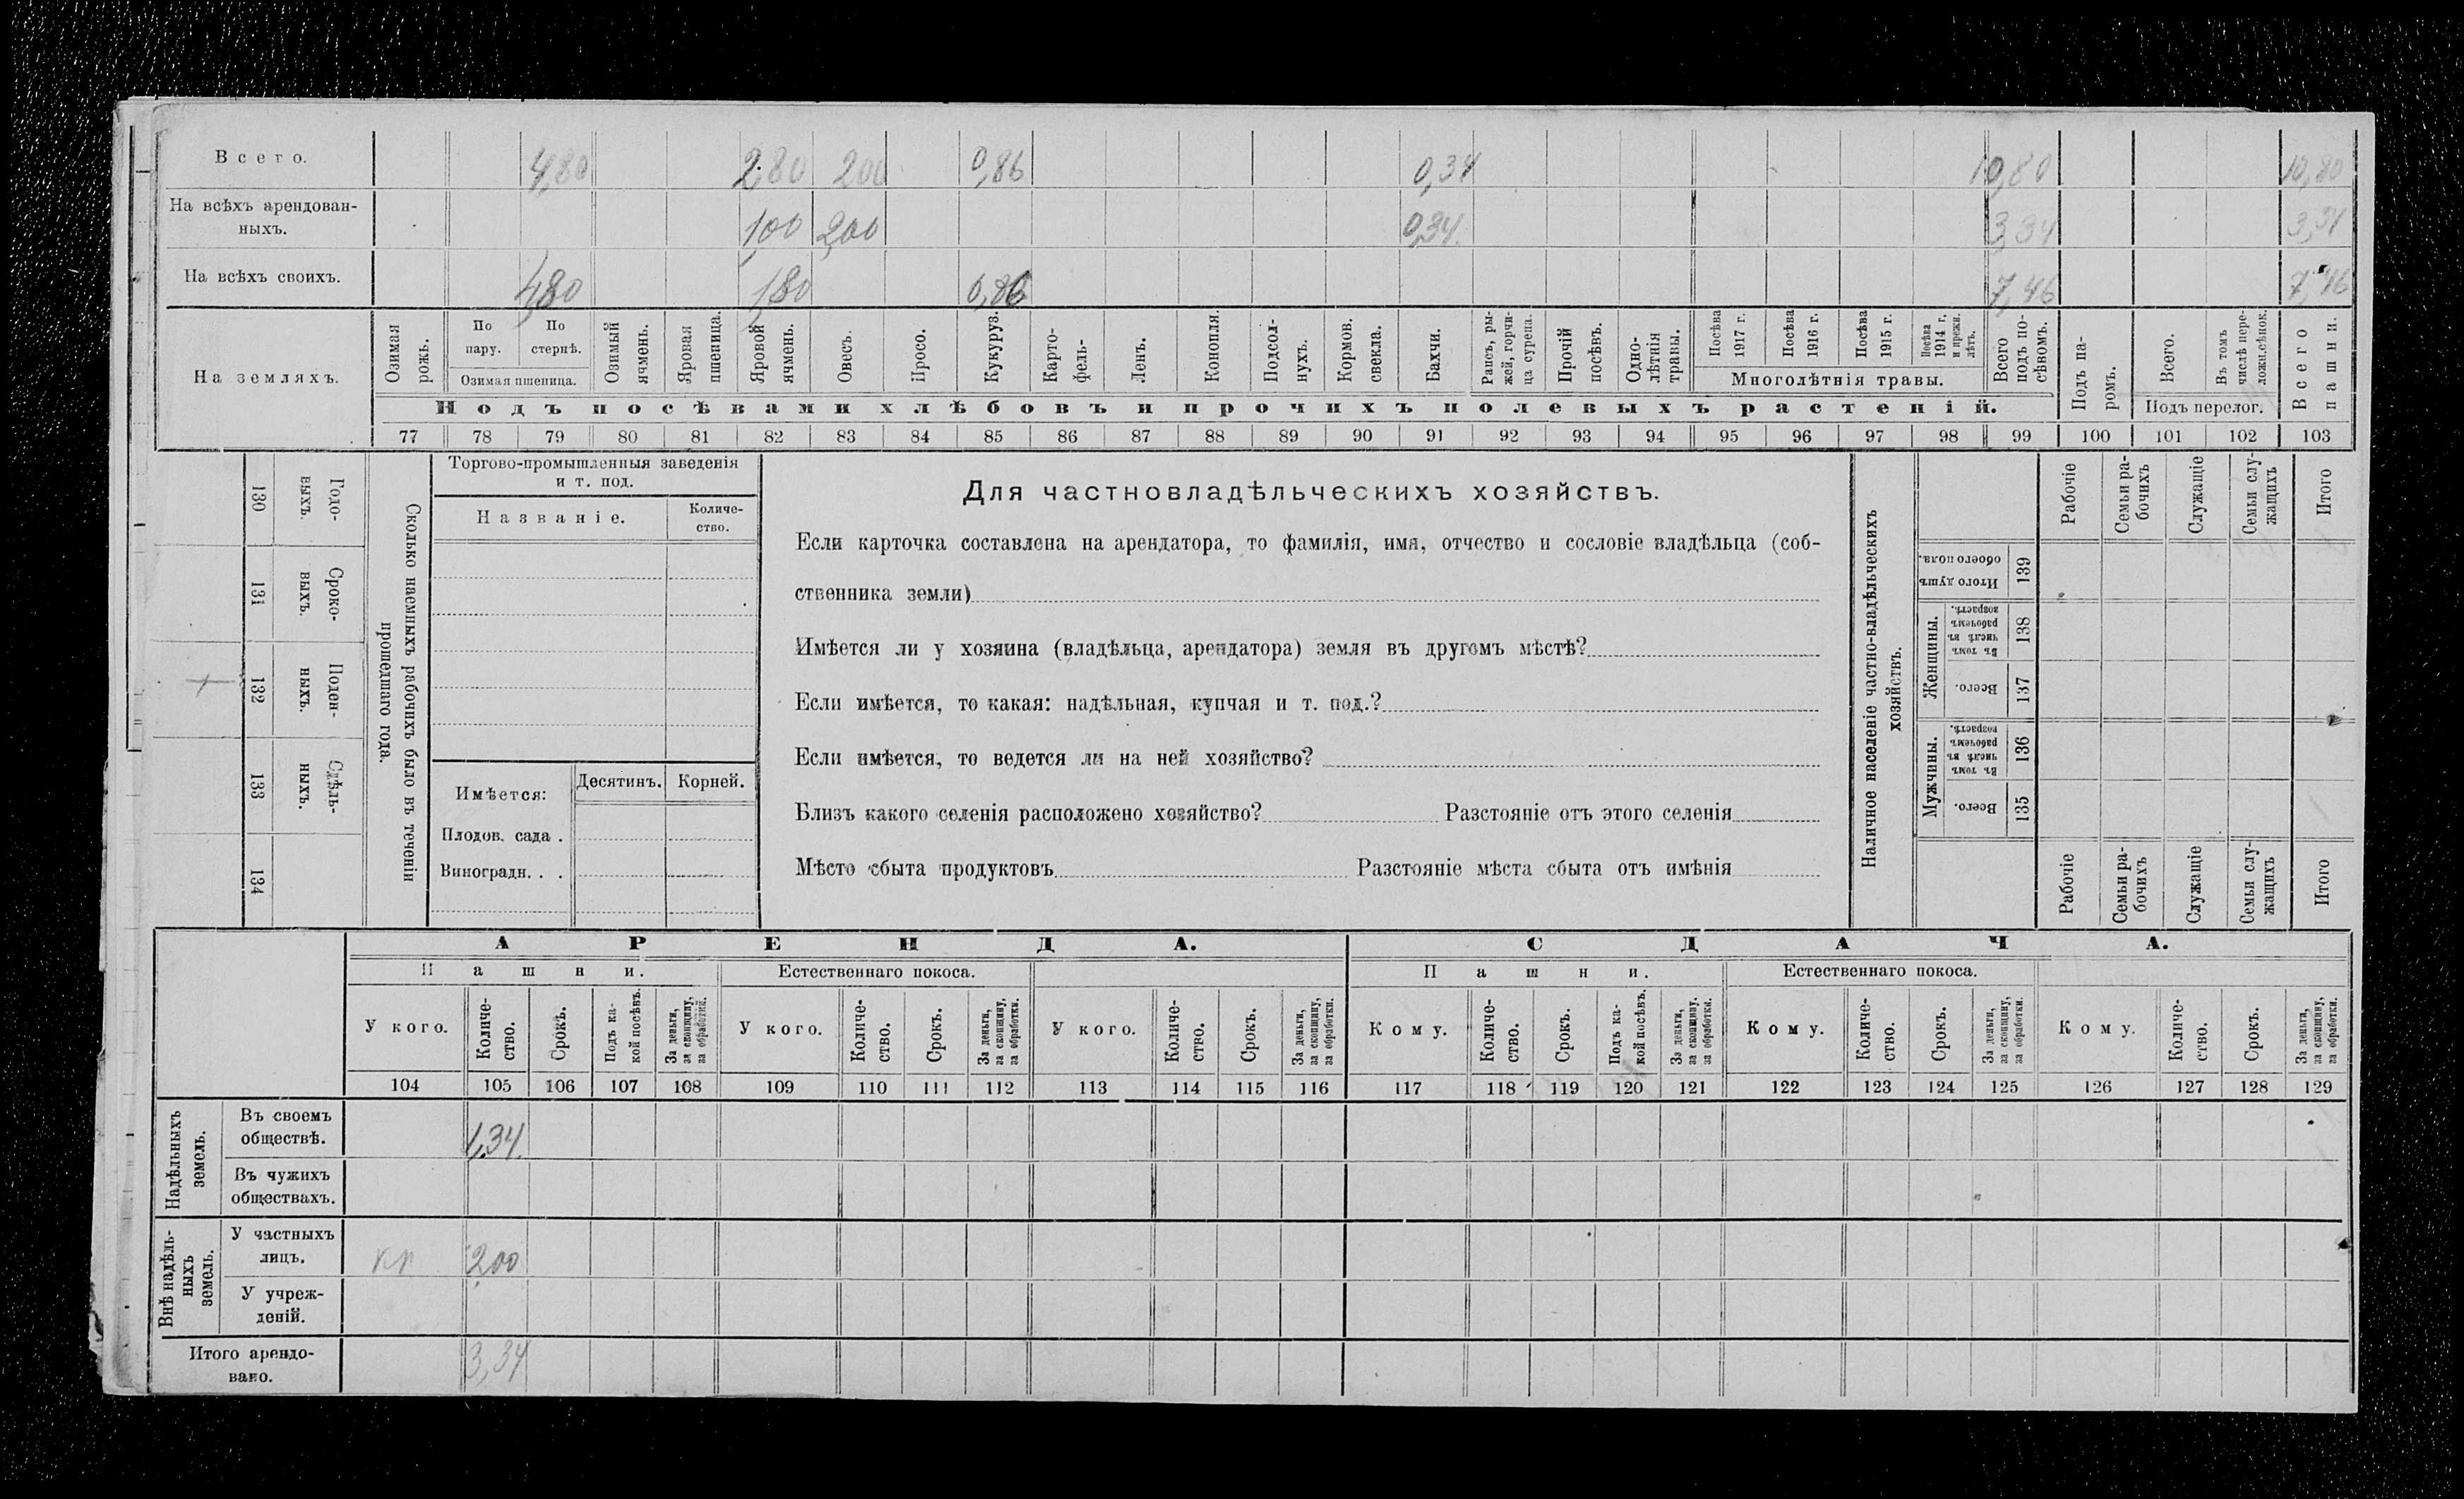 Всего. 4,80 2,80 200 0,86 0,34 10,80 10,80
На всѣхъ арендован-
ныхъ. 1,00 2,00 0,34. 3,34 3,34
На всѣхъ своихъ. 4,80 1,80 0,86 7,46 7,46
На земляхъ.
Озимая рожь.
По пару.
По стернѣ.
Озимая пшеница.
Озимый ячмень.
Яровая пшеница.
Яровой ячмень.
Овесъ.
Просо.
Кукуруз.
Карто-
фель-
Ленъ.
Конопля.
Подсол-
нухъ.
Кормов.
свекла.
Бахчи.
Рапсъ, ры-
жей, горчи-
ца сурепа.
Прочій
посѣвъ.
Одно-
лѣтнія
травы.
Посѣва
1917 г.
Посѣва
1916 г.
Посѣва
1915 г.
Посѣва
1914 г.
и прежн.
лѣтъ.
Многолѣтнія травы.
Всего
подъ по-
сѣвомъ.
Подъ па-
ромъ.
Всего.
Въ томъ
числѣ пере-
ложн.сѣнок.
Подъ перелог.
Всего
пашни.
Подъ посѣвами хлѣбовъ и прочихъ полевыхъ растеній.
77 78 79 80 81 82 83 84 85 86 87 88 89 90 91 92 93 94 95 96 97 98 99 100 101 102 103
130 Годо-
выхъ.
131 Сроко-
выхъ.
132 Поден-
ныхъ.
133 Сдѣль-
ныхъ.
134
Сколько наемныхъ рабочихъ было въ теченіи
прошедшаго года.
Торгово-промышленныя заведенія
и т. под.
Названіе.
Количе-
ство.
Имѣется: Десятинъ. Корней.
Плодов. сада .
Виноградн. . .
Для частновладѣльческихъ хозяйствъ.
Если карточка составлена на арендатора, то фамилія, имя, отчество и сословіе владѣльца (соб-
ственника земли)
Имѣется ли у хозяина (владѣльца, арендатора) земля въ другомъ мѣстѣ?
Если имѣется, то какая: надѣльная, купчая и т. под.?
Если имѣется, то ведется ли на ней хозяйство?
Близъ какого селенія расположено хозяйство? Разстояніе отъ этого селенія
Мѣсто сбыта продуктовъ Разстояніе мѣста сбыта отъ имѣнія
Наличное населеніе частно-владѣльческихъ
хозяйствъ.
Рабочіе
Семьи ра-
бочихъ
Служащіе
Семьи слу-
жащихъ
Итого
Итого душ
обоего пола.
139
Женщины.
Въ томъ
числѣ въ
рабочемъ
возрастѣ.
138
Всего.
137
Мужчины.
Въ томъ
числѣ въ
рабочемъ
возрастѣ.
136
Всего.
135
Рабочіе
Семьи ра-
бочихъ
Служащіе
Семьи слу-
жащихъ
Итого
АРЕНДА. СДАЧА.
Пашни. Естественнаго покоса. Пашни. Естественнаго покоса.
У кого.
Количе-
ство.
Срокъ.
Подъ ка-
кой посѣвъ.
За деньги,
за скопщину,
за обработки.
У кого.
Количе-
ство.
Срокъ.
За деньги,
за скопщину,
за обработки.
У кого.
Количе-
ство.
Срокъ.
За деньги,
за скопщину,
за обработки.
Кому.
Количе-
ство.
Срокъ.
Подъ ка-
кой посѣвъ.
За деньги,
за скопщину.
за обработки.
Кому.
Количе-
ство.
Срокъ.
За деньги,
за скопщину,
за обработки.
Кому.
Количе-
ство.
Срокъ.
За деньги,
за скопщину,
за обработки.
104 105 106 107 108 109 110 111 112 113 114 115 116 117 118 119 120 121 122 123 124 125 126 127 128 129
Надѣльныхъ
земель.
Въ своемъ
обществѣ. 1,34.
Въ чужихъ
обществахъ.
Внѣ надѣль-
ныхъ
земель.
У частныхъ
лицъ. кр 2,00
У учреж-
деній.
Итого арендо-
вано. 3,34